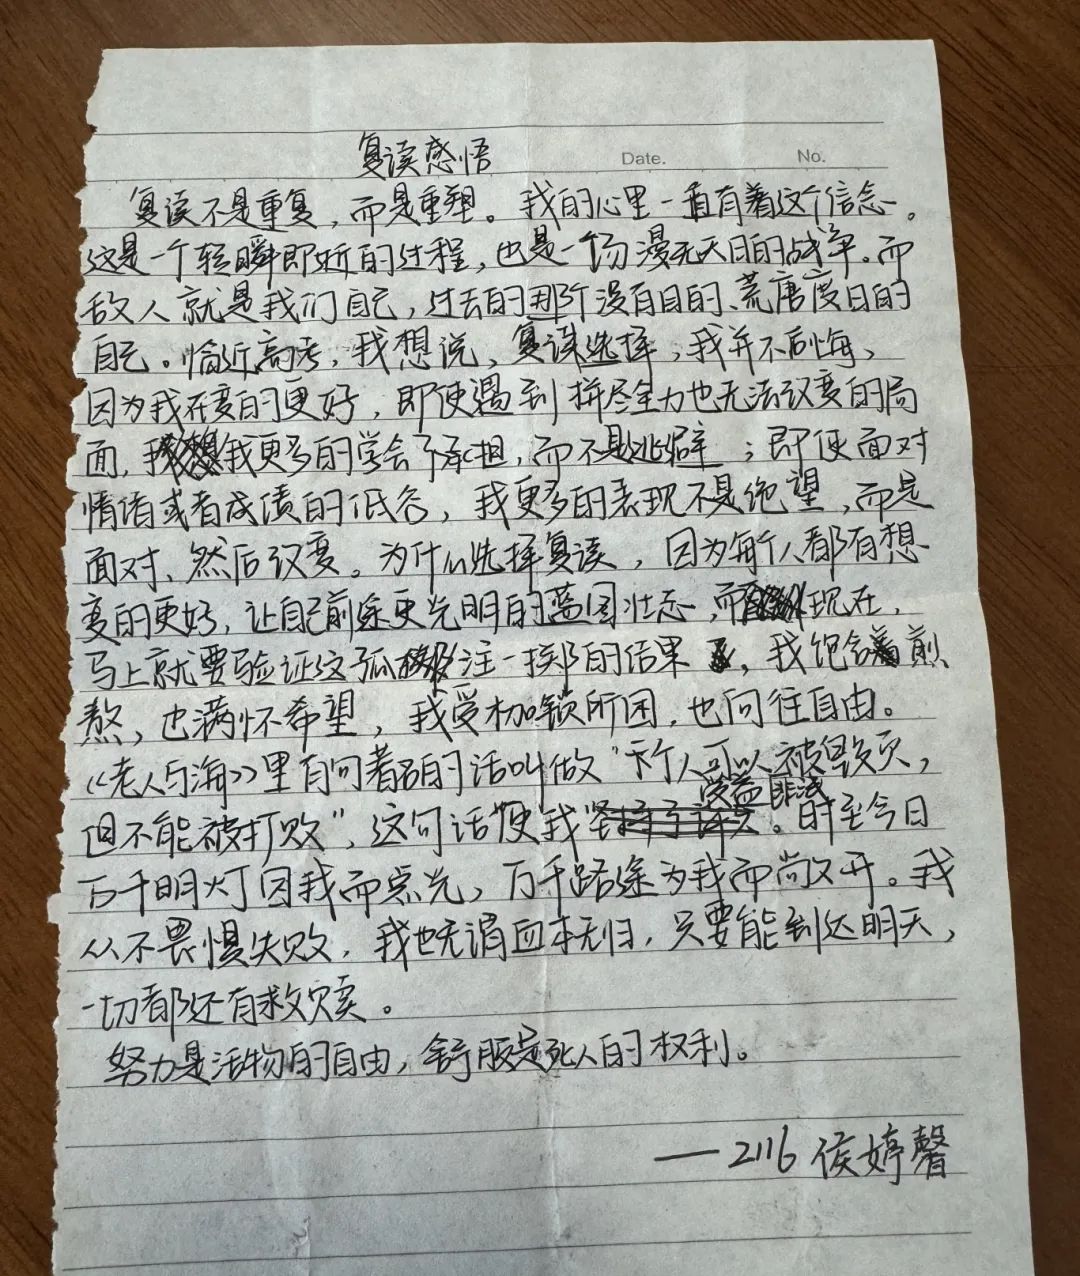 复读感悟
Date.
No.
复读不是重复，而是重塑。我的心里一直有着这个信念。
这是一个转瞬即逝的过程，也是一场漫无天日的战争。而
敌人就是我们自己，过去的那个没有目的、荒唐度日的
自己。临近高考，我想说，复读选择，我并不后悔、
因为我在变的更好，即使遇到拼尽全力也无法改变的局
面，我更多的学会了承担，而不是逃避；即使面对
情绪或者成绩的低谷，我更多的表现不是绝望，而是
面对、然后改变。为什么选择复读，因为每个人都有想
变的更好，让自己前途更光明的蓝图壮志，而现在，
马上就要验证这孤注一掷的结果，我饱含着煎
熬，也满怀希望，我受枷锁所困，也向往自由。
《老人与海》里有句著名的话叫做“一个人可以被毁灭，
但不能被打败”，这句话使我受益匪浅。时至今日
万千明灯因我而点光，万千路途为我而敞开。我
从不畏惧失败，我也无谓血本无归，只要能到达明天，
一切都还有救赎。
努力是活物的自由，舒服是死人的权利。
——2116 侯婷馨